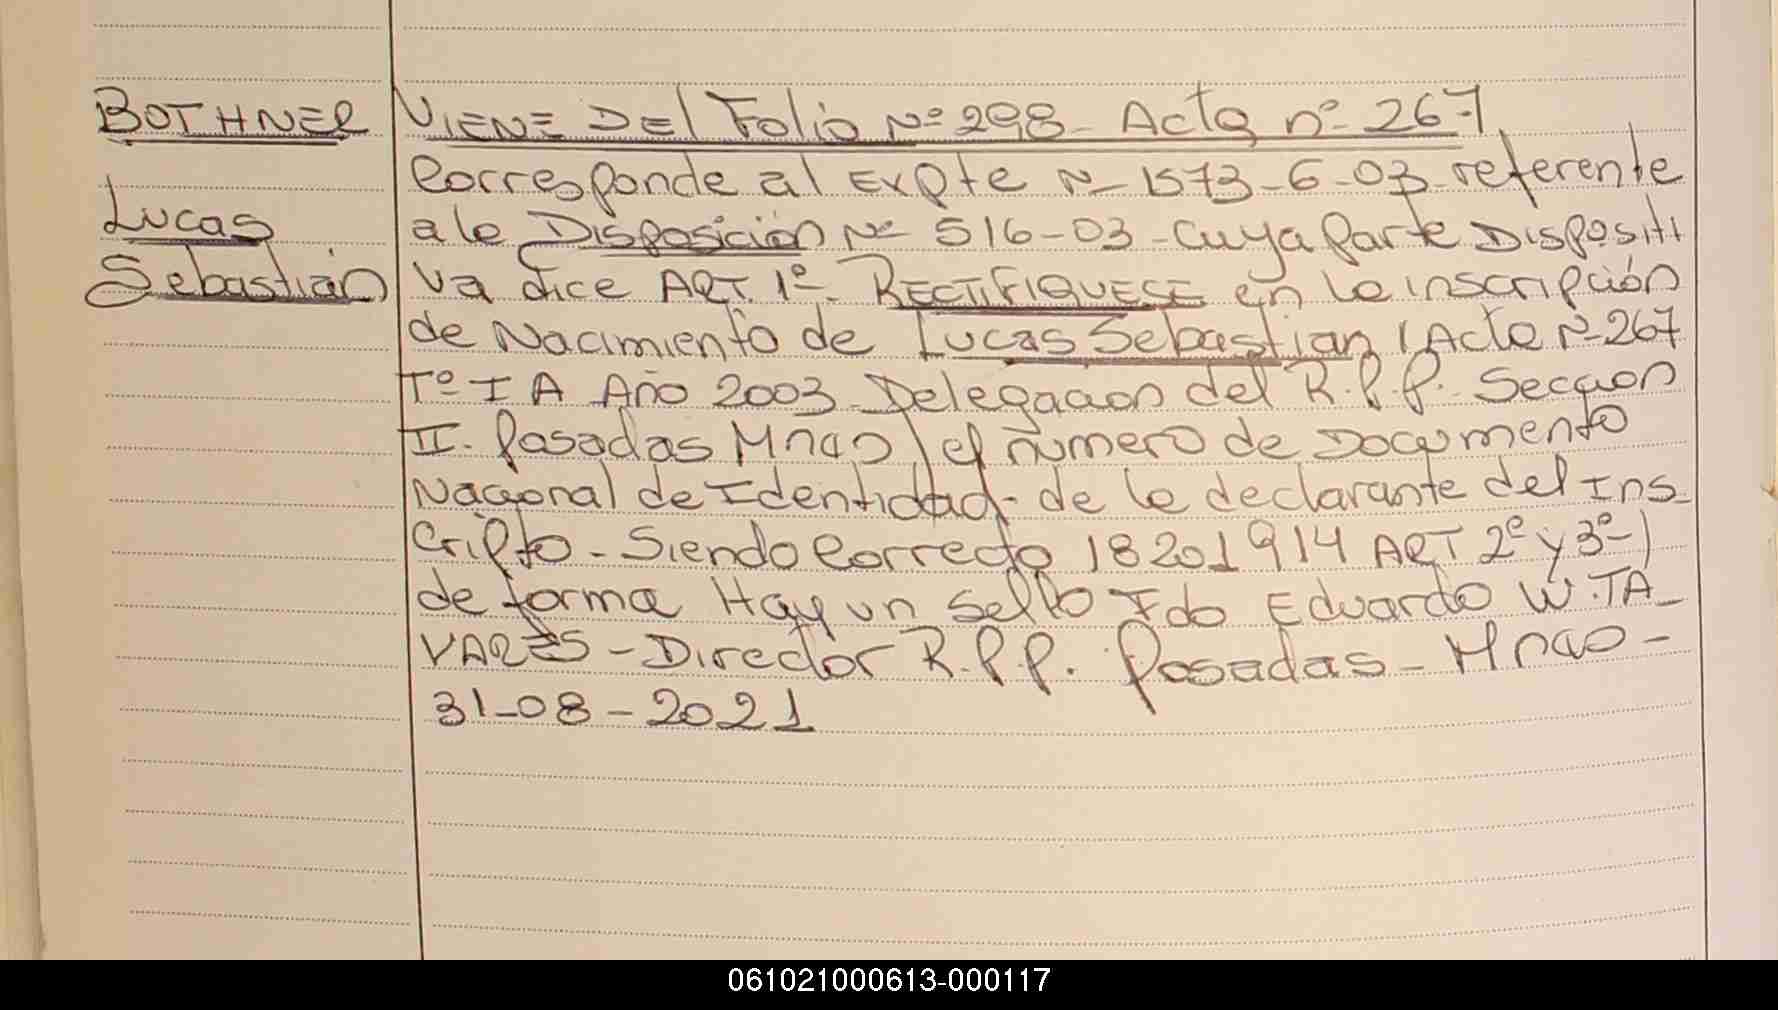 BOTHNER
Lucas
Sebastián
VIENE DEL Folio Nº 298- Acta nº- 267
Corresponde al Expte N- 1573-6-03-referente
a la Disposición Nº 516-03-cuya Parte Dispositi
va dice ART. 1º- RECTIFIQUESE en la inscripción
de Nacimiento de Lucas Sebastian (Acta Nº-267
Tº I A Año 2003-Delegacion del R.P.P. Seccion
II- Posadas Mnes) el número de Documento
Nacional de Identidad- de la declarante del Ins-
cripto - Siendo Correcto 18201914 ART 2º y 3º-)
de forma Hay un Sello Fdo Eduardo W.TA-
VARES - Director R.P.P. Posadas - Mnes -
31-08-2021
061021000613-000117